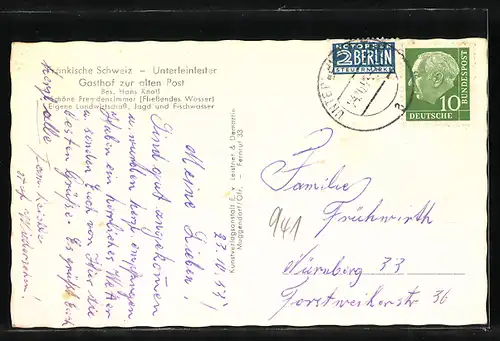 Fränkische Schweiz – Unterleinleiter
Gasthof zur alten Post
Bes. Hans Knoll
Schöne Fremdenzimmer (Fließendes Wasser)
Eigene Landwirtschaft, Jagd und Fischwasser
NOTOPFER
2 BERLIN
STEUERMARKE
DEUTSCHE
BUNDESPOST
10
Kunstverlagsanstalt E. v. Leistner &
Muggendorf/Ofr. - Fernruf 33
23.10.54
Meine Lieben!
Sind gut angekommen
u. wurden herzl. empfangen
Haben ein herrliches Wetter
u. senden Euch von hier die
besten Grüße. Es grüßt Euch
herzl. alle
auf Wiedersehen!
Familie
Frühwirth
941
Nürnberg 33
Forstweiherstr 36